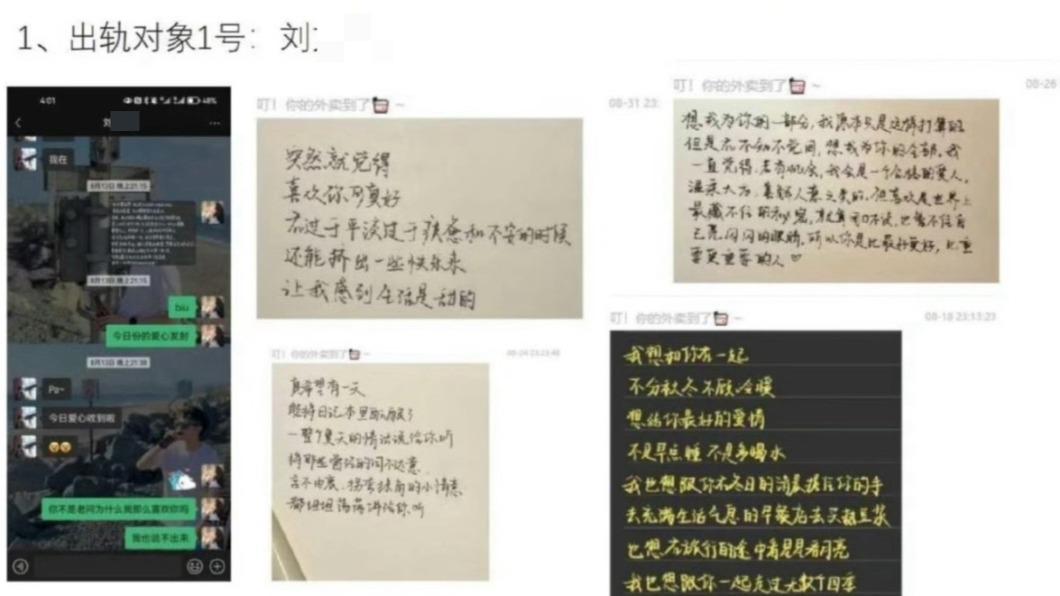 1、出轨对象1号：刘
4:01
48%
刘
我在
8月13日 晚上21:15
8月13日 晚上21:15
biu
今日份的爱心发射
8月13日 晚上21:38
Pa~
今日爱心收到啦
你不是老问为什么我那么喜欢你吗
我也说不出来
叮！你的外卖到了 ~
08-31 23:
突然就觉得
喜欢你可真好
在过于平淡过于疲惫和不安的时候
还能挤出一些快乐来
让我感到生活是甜的
叮！你的外卖到了 ~
08-26
想我为你的一部分，我原本只是这样打算的
但是在不知不觉间，想我为你的全部。我
一直觉得，若有机会，我会是一个合格的爱人。
温柔大方，善解人意之类的。但喜欢是世界上
最藏不住的秘密，就算口不说，也管不住自
己亮闪闪的眼睛，所以你是比最好更好，比重
要更重要的人♡
叮！你的外卖到了 ~
08-24 23:23:48
真希望有一天
能将日记本里
一整个夏天的情话说给你听
将那些曾经的词不达意
言不由衷、拐弯抹角的小情意
都坦坦荡荡讲给你听
叮！你的外卖到了 ~
08-18 23:13:23
我想和你在一起
不分秋冬 不顾冷暖
想给你最好的爱情
不是早点睡 不是多喝水
我也想跟你在冬日的清晨搓搓你的手
去充满生活气息的早餐店去买杯豆浆
也想在旅行的途中看星星看月亮
我也想跟你一起走过无数个四季